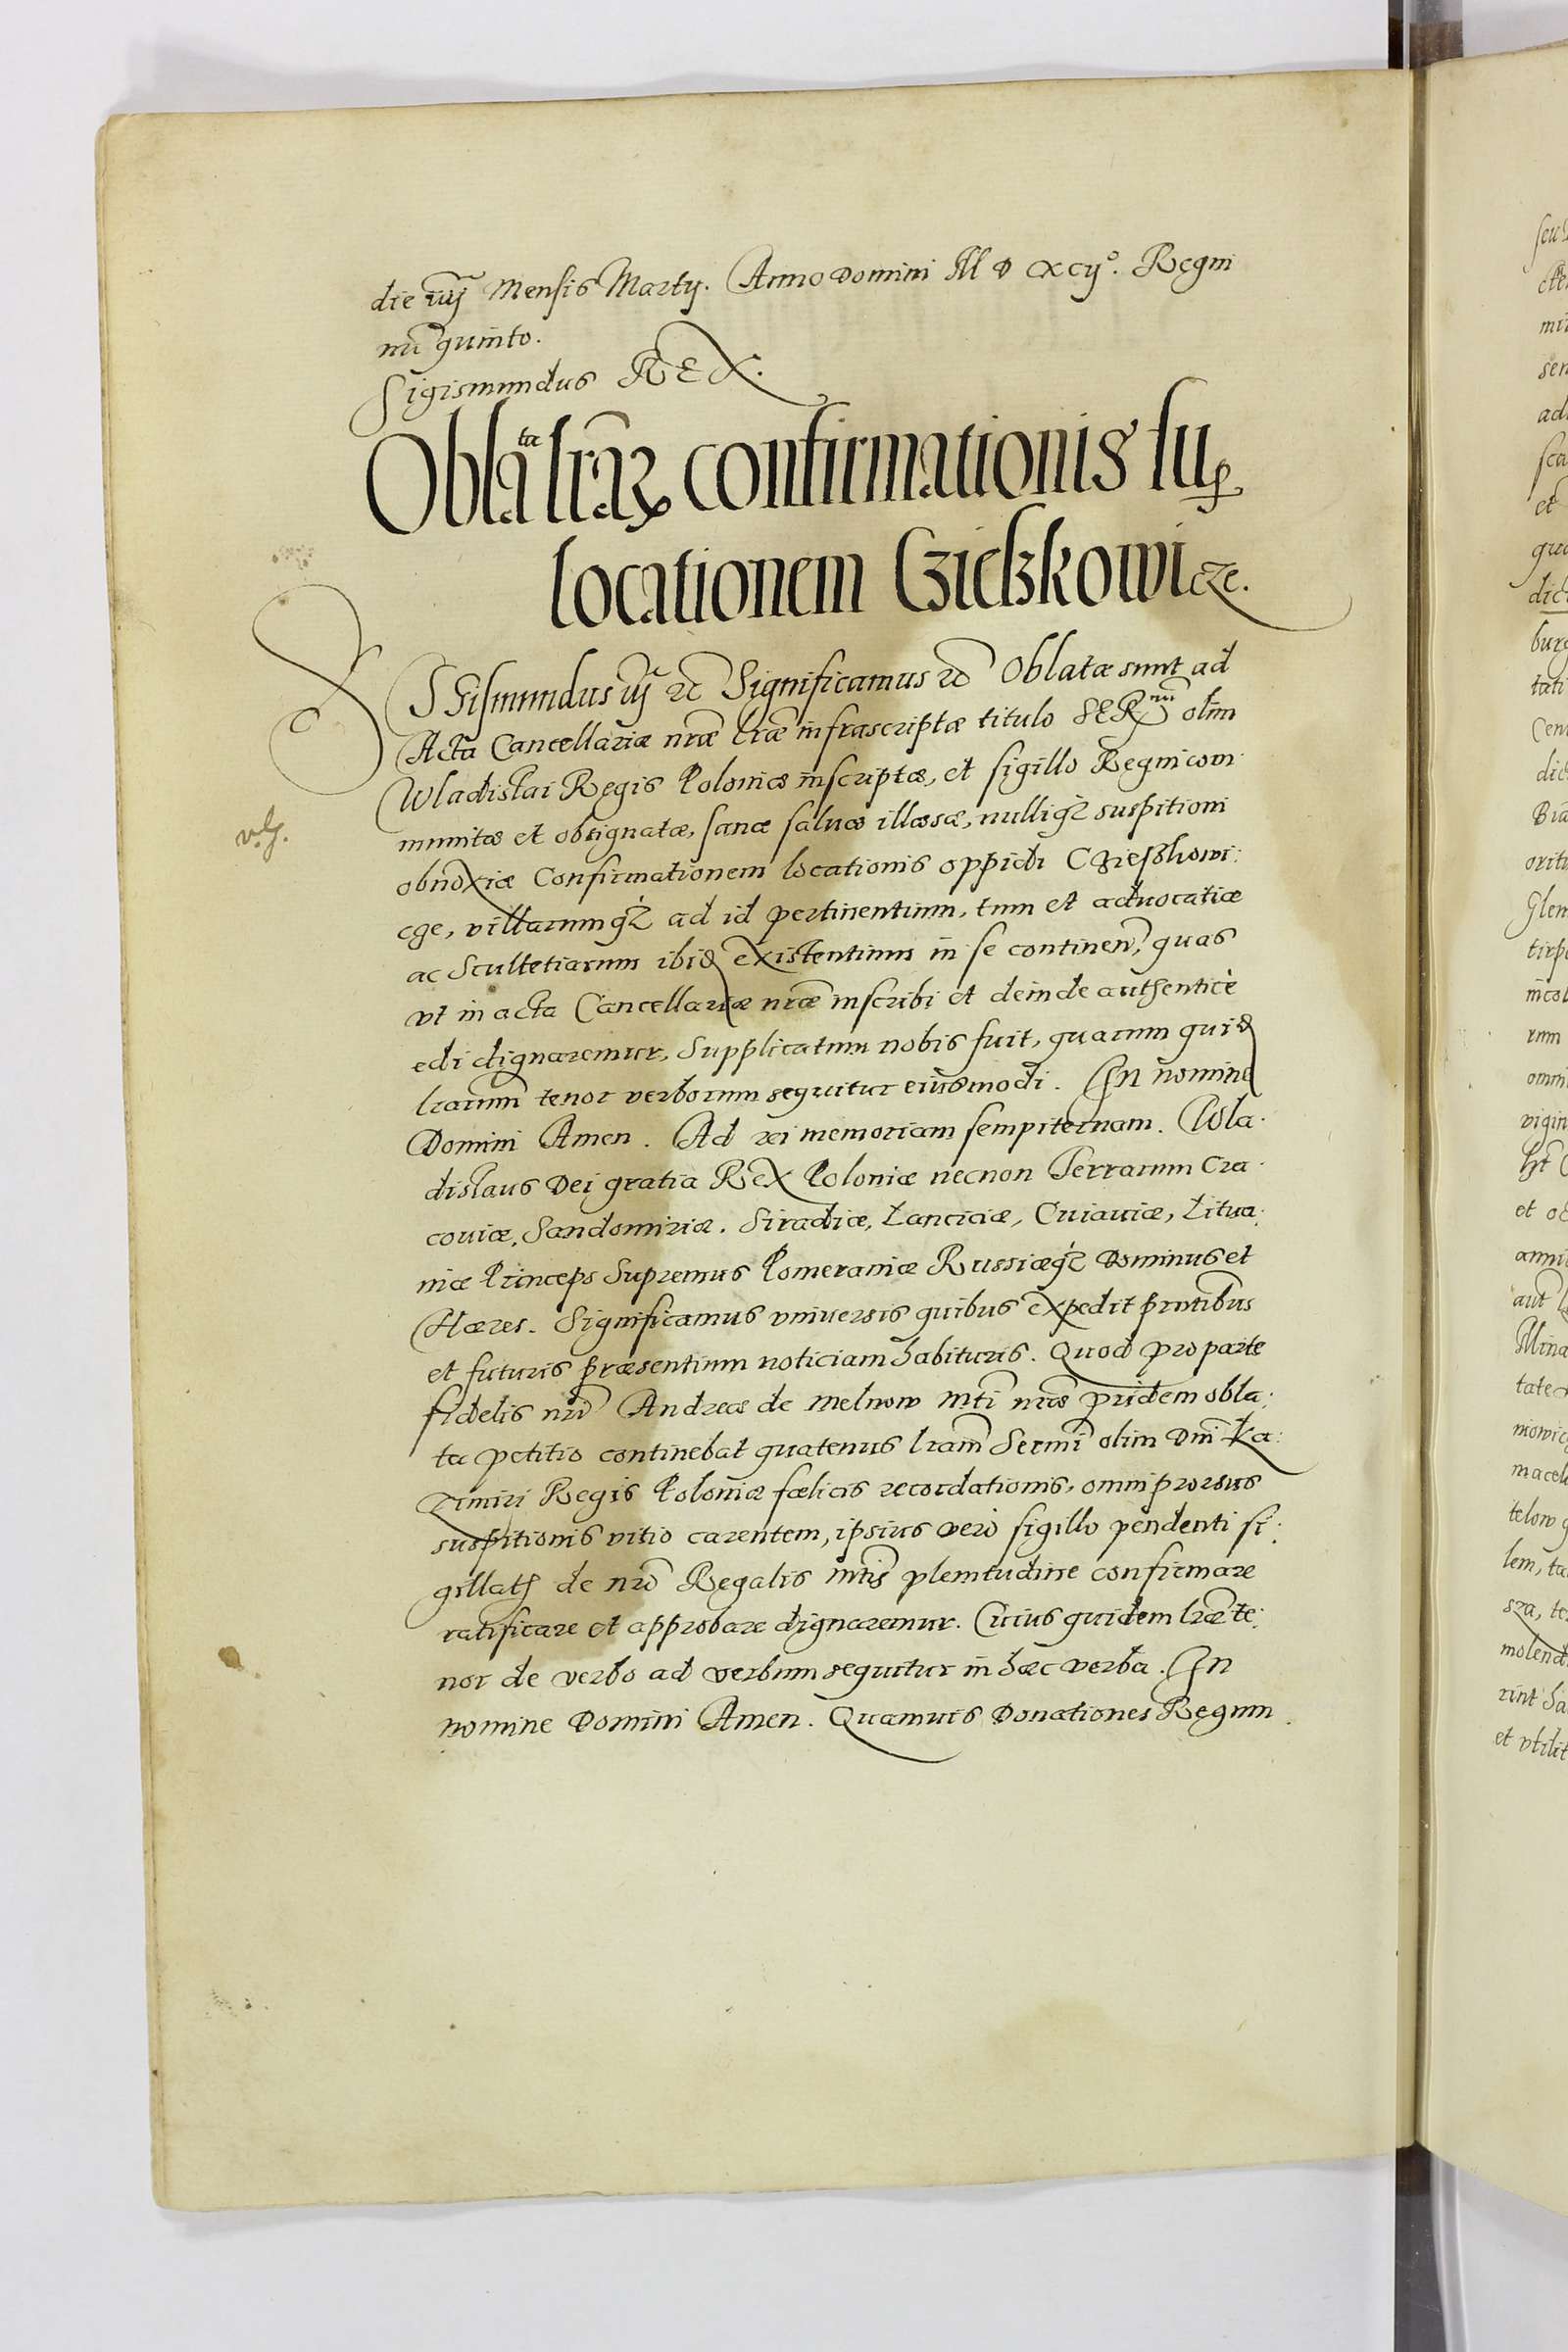 die iiij Mensis Martij. Anno Domini M D XCij°. Regni
nri quinto.
Sigismundus REX.
Oblata lrarum confirmationis sup
locationem Czieszkowicze.
SIGismundus iij etc Significamus etc Oblatæ sunt ad
Acta Cancellariæ nræ lræ infrascriptæ titulo SERmi olim
Wladislai Regis Poloniæ inscriptæ, et sigillo Regni com
munitæ et obsignatæ, sanæ saluæ illæsæ, nulliq3 suspitioni
obnoxiæ Confirmationem locationis oppidi Czieszkowi:
cze, villarumq3 ad id pertinentium, tum et aduocatiæ
ac Scultetiarum ibid existentium in se continen, quas
vt in acta Cancellariæ nræ inscribi et deinde authenticè
edi dignaremur, Supplicatum nobis fuit, quarum quid
lrarum tenor verborum sequitur eiusmodi. In nomine
Domini Amen. Ad rei memoriam sempiternam. Wla:
dislaus Dei gratia REX Poloniæ necnon Terrarum Cra:
couiæ, Sandomiriæ. Siradiæ, Lanciciæ, Cuiauiæ, Litua:
niæ Princeps Supremus Pomeraniæ Russiæq3 Dominus et
Hæres. Significamus vniuersis quibus expedit pntibus
et futuris præsentium noticiam habituris. Quod pro parte
fidelis nri Andreæ de Melnow Mti nræ pridem obla:
ta petitio continebat quatenus lram Sermi olim Dni Ka:
zimiri Regis Poloniæ fælicis recordationis, omni prorsus
suspitionis vitio carentem, ipsius verò sigillo pendenti si:
gillat de nræ Regalis Mtis plenitudine confirmare
ratificare et approbare dignaremur. Cuius quidem lræ te:
nor de verbo ad verbum sequitur in hæc verba. In
nomine Domini Amen. Quamuis Donationes Regum